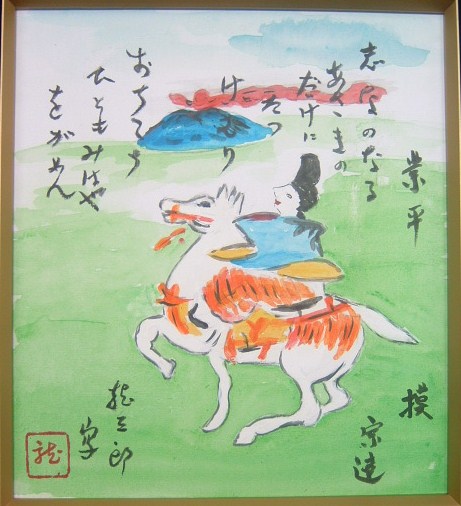 業平
志なのなる
あさまの
だけに
立つ
けむり
おちこち
ひともみはや
とがめん
摸 宗達
龍三郎
写
龍